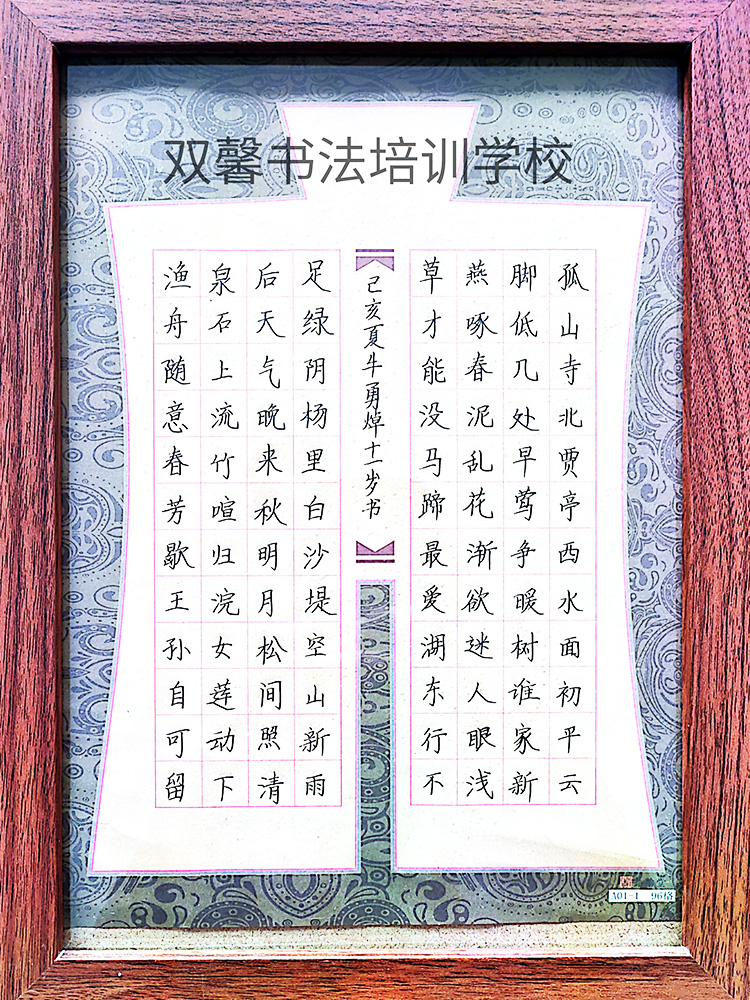 双馨书法培训学校
孤山寺北贾亭西水面初平云
脚低几处早莺争暖树谁家新
燕啄春泥乱花渐欲迷人眼浅
草才能没马蹄最爱湖东行不
足绿阴杨里白沙堤空山新雨
后天气晚来秋明月松间照清
泉石上流竹喧归浣女莲动下
渔舟随意春芳歇王孙自可留
己亥夏牛勇焯十一岁书
A01-1 96格